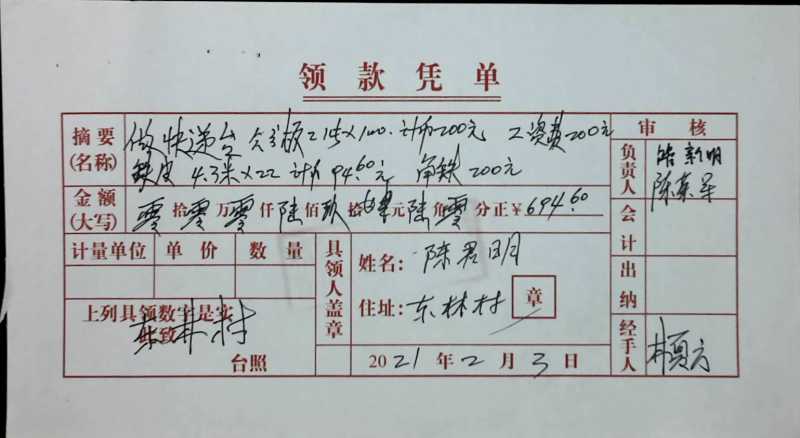 领款凭单
摘要 做快递台 2块×100. 计币200元 工资费200元
(名称) 铁皮 4.3米×22 计币94.60元 角铁200元
审核
负责人 陈
金额 零拾零万零仟陆佰玖拾肆元陆角零分正￥694.60
(大写)
会计
计量单位 单价 数量
具领人盖章
姓名: 陈君明
住址: 东林村 章
出纳
上列具领数字是实
致 东林村
台照
2021年2月3日
经手人